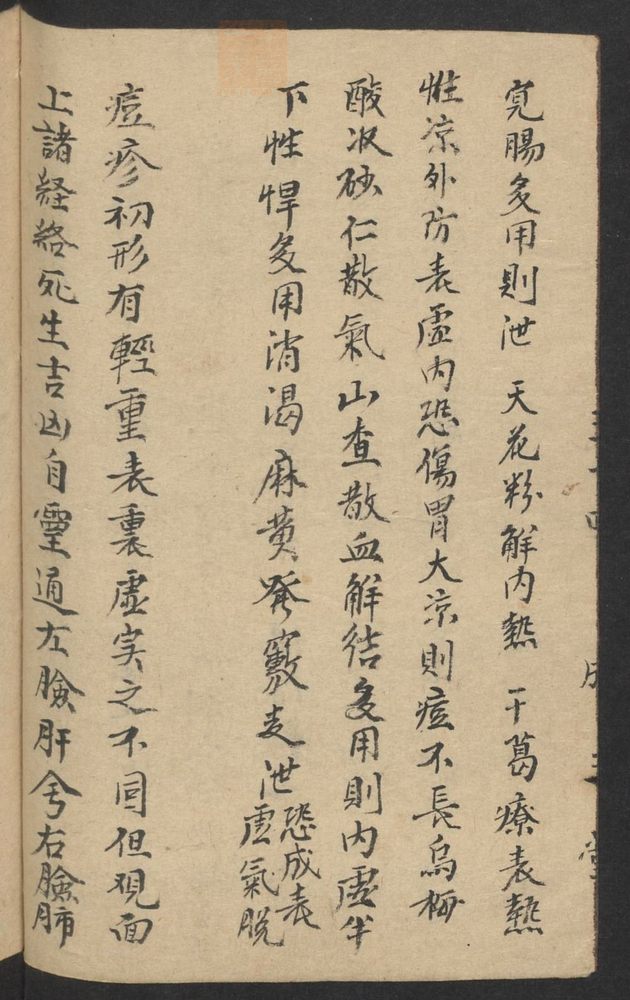 寬腸多用則泄 天花粉解内熱 干葛療表熱
性凉外防表虛内恐傷胃大凉則痘不長烏梅
酸收砂仁散氣山查散血解结多用則内虛半
下性悍多用消渴 麻黄發竅走泄恐成表
虛氣脱
痘疹初形有輕重表裏虛实之不同但观面
上諸経絡死生吉凶自靈通左臉肝兮右臉肺